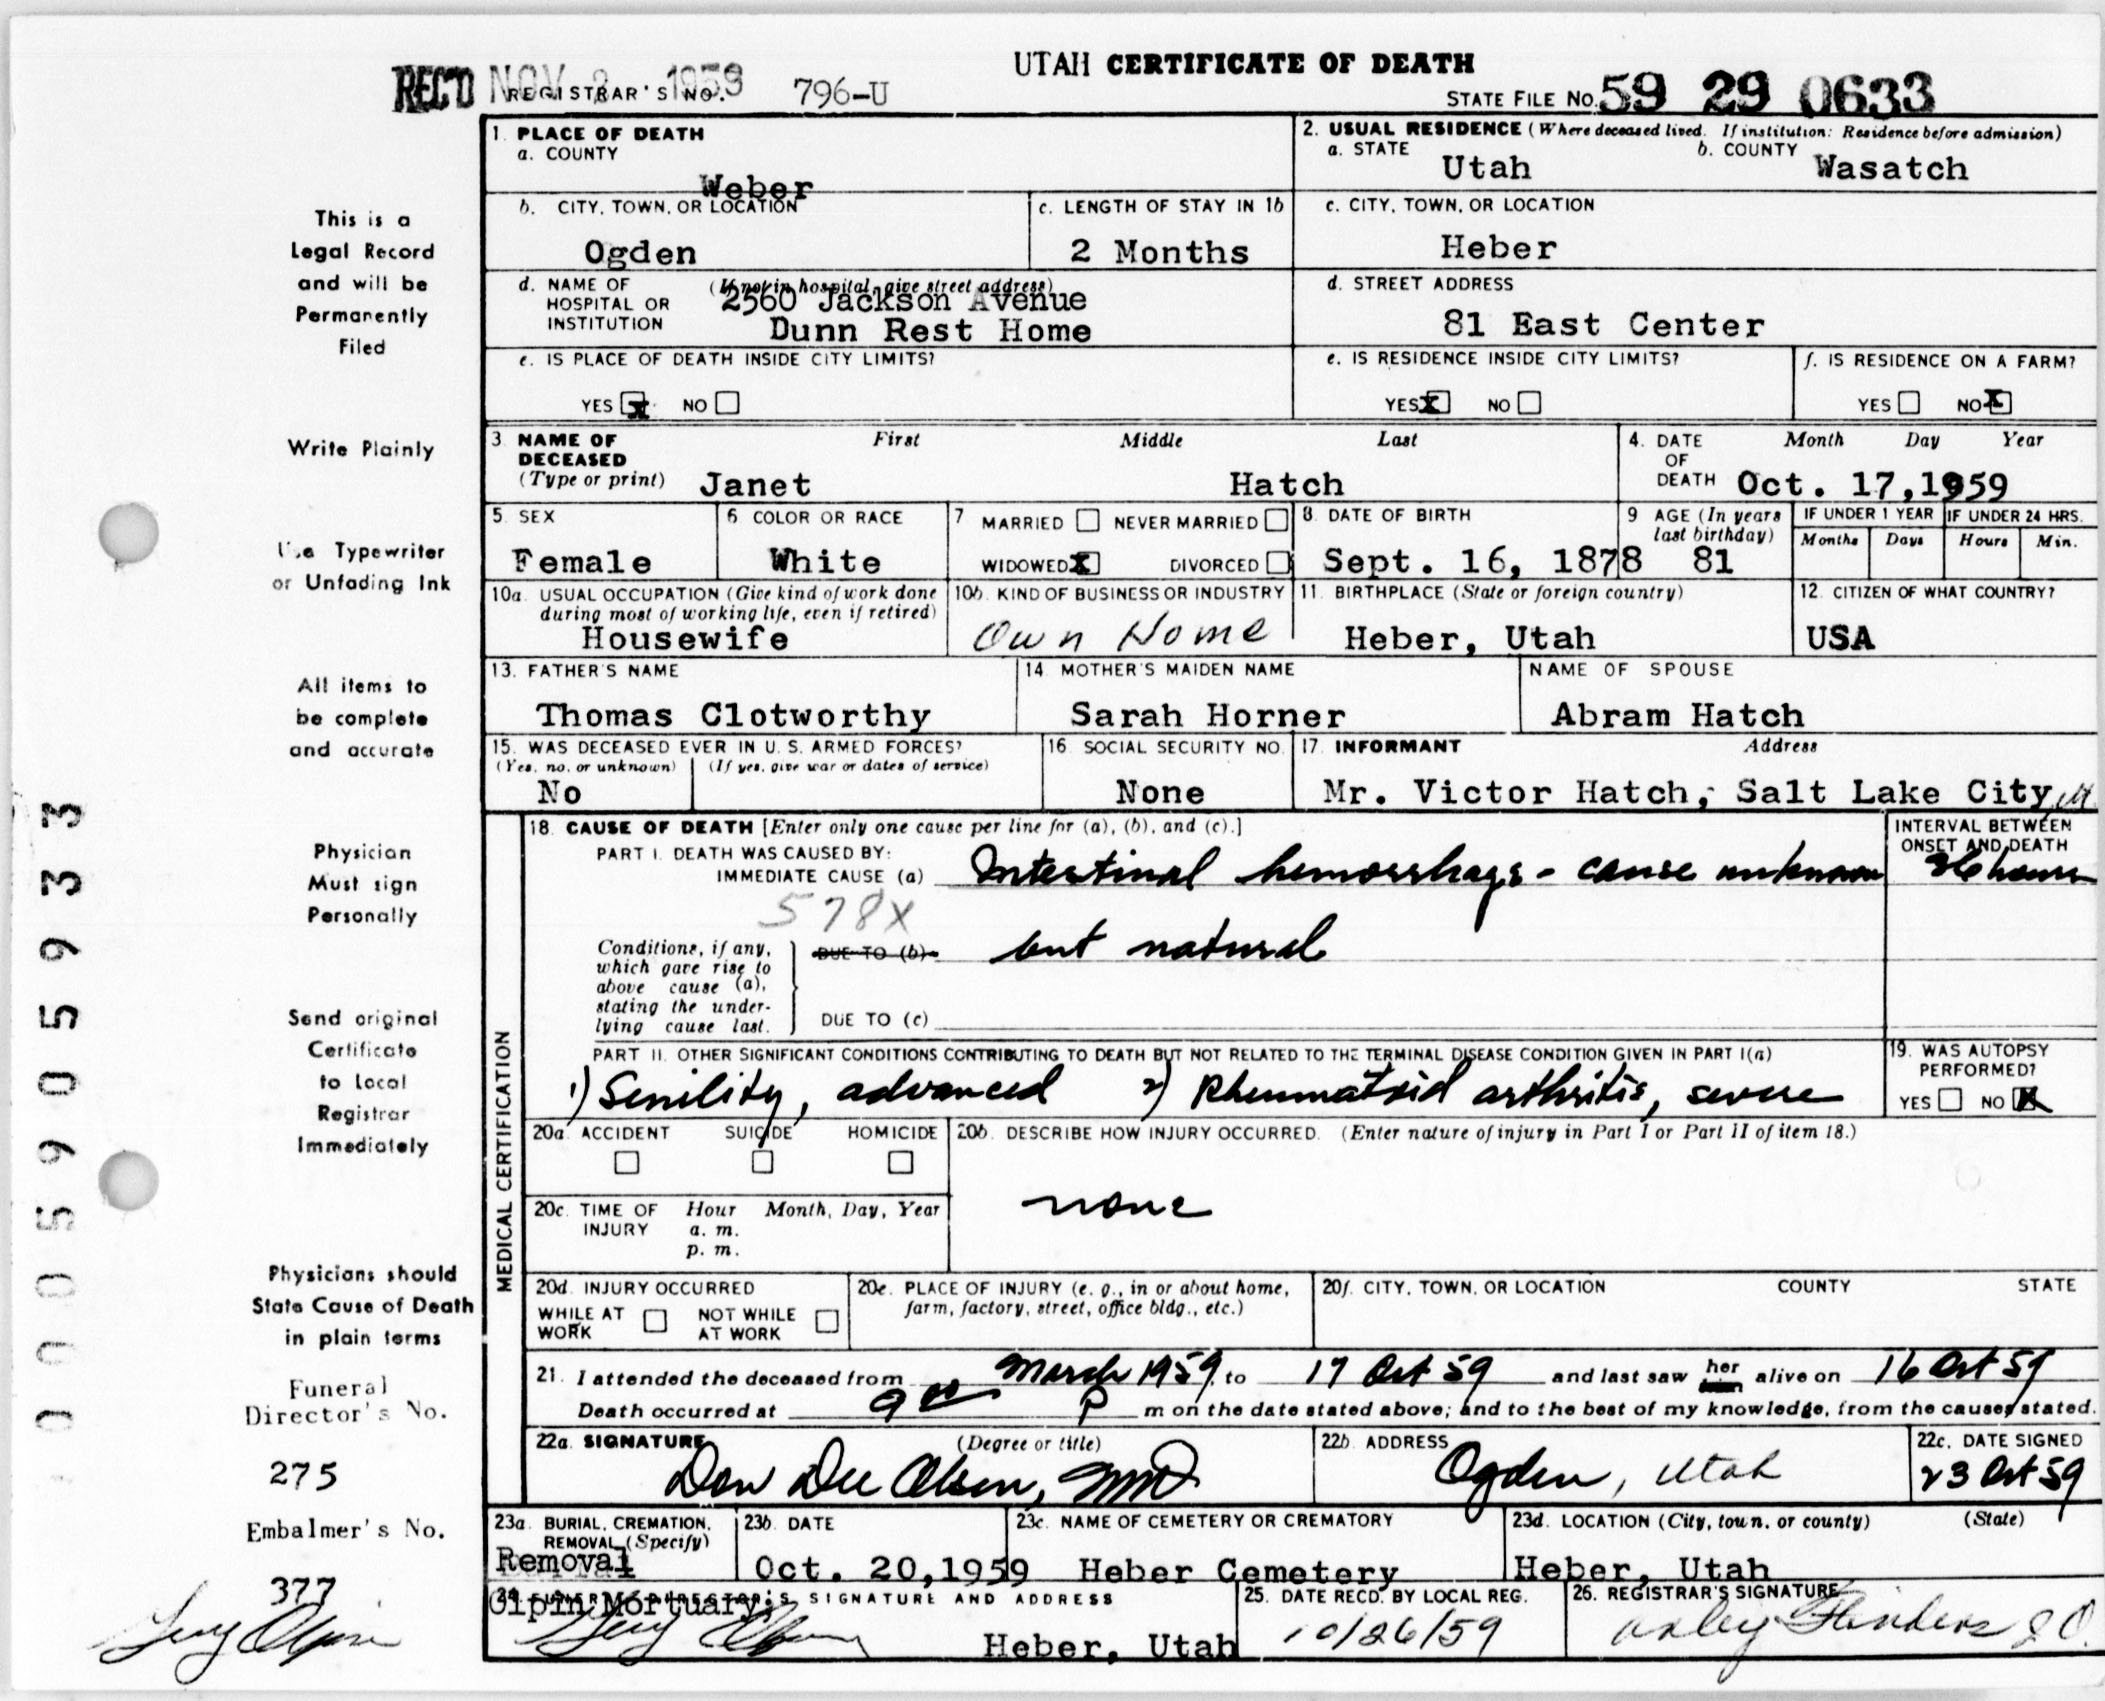 UTAH CERTIFICATE OF DEATH
REC'D NOV 2 1959 REGISTRAR'S NO. 796-U
STATE FILE NO. 59 29 0633
1. PLACE OF DEATH
a. COUNTY
Weber
2. USUAL RESIDENCE (Where deceased lived. If institution: Residence before admission)
a. STATE Utah b. COUNTY Wasatch
b. CITY, TOWN, OR LOCATION
Ogden
c. LENGTH OF STAY IN 1b
2 Months
c. CITY, TOWN, OR LOCATION
Heber
d. NAME OF HOSPITAL OR INSTITUTION (If not in hospital, give street address)
2560 Jackson Avenue
Dunn Rest Home
d. STREET ADDRESS
81 East Center
e. IS PLACE OF DEATH INSIDE CITY LIMITS?
YES X NO
e. IS RESIDENCE INSIDE CITY LIMITS?
YES X NO
f. IS RESIDENCE ON A FARM?
YES NO X
3. NAME OF DECEASED (Type or print) First Middle Last
Janet Hatch
4. DATE OF DEATH Month Day Year
Oct. 17,1959
5. SEX
Female
6 COLOR OR RACE
White
7 MARRIED NEVER MARRIED
WIDOWED X DIVORCED
8. DATE OF BIRTH
Sept. 16, 1878
9 AGE (In years last birthday)
81
IF UNDER 1 YEAR Months Days
IF UNDER 24 HRS. Hours Min.
10a. USUAL OCCUPATION (Give kind of work done during most of working life, even if retired)
Housewife
10b. KIND OF BUSINESS OR INDUSTRY
Own Home
11. BIRTHPLACE (State or foreign country)
Heber, Utah
12. CITIZEN OF WHAT COUNTRY?
USA
13. FATHER'S NAME
Thomas Clotworthy
14 MOTHER'S MAIDEN NAME
Sarah Horner
NAME OF SPOUSE
Abram Hatch
15. WAS DECEASED EVER IN U. S. ARMED FORCES?
(Yes, no, or unknown) (If yes, give war or dates of service)
No
16. SOCIAL SECURITY NO.
None
17. INFORMANT Address
Mr. Victor Hatch, Salt Lake City, Ut
MEDICAL CERTIFICATION
18. CAUSE OF DEATH [Enter only one cause per line for (a), (b), and (c).]
PART I. DEATH WAS CAUSED BY:
IMMEDIATE CAUSE (a) Intestinal hemorrhage - cause unknown
INTERVAL BETWEEN ONSET AND DEATH
36 hours
578X
Conditions, if any, which gave rise to above cause (a), stating the underlying cause last.
DUE TO (b) but natural
DUE TO (c)
PART II. OTHER SIGNIFICANT CONDITIONS CONTRIBUTING TO DEATH BUT NOT RELATED TO THE TERMINAL DISEASE CONDITION GIVEN IN PART I(a)
1) Senility, advanced 2) Rheumatoid arthritis, severe
19. WAS AUTOPSY PERFORMED?
YES NO X
20a. ACCIDENT SUICIDE HOMICIDE
20b. DESCRIBE HOW INJURY OCCURRED. (Enter nature of injury in Part I or Part II of item 18.)
none
20c. TIME OF INJURY Hour Month, Day, Year
a. m.
p. m.
20d. INJURY OCCURRED
WHILE AT WORK NOT WHILE AT WORK
20e. PLACE OF INJURY (e. g., in or about home, farm, factory, street, office bldg., etc.)
20f. CITY, TOWN, OR LOCATION COUNTY STATE
21. I attended the deceased from March 1959, to 17 Oct 59 and last saw her him alive on 16 Oct 59
Death occurred at 9 00 P m on the date stated above; and to the best of my knowledge, from the causes stated.
22a. SIGNATURE (Degree or title)
Don Dee Olsen, MD
22b. ADDRESS
Ogden, Utah
22c. DATE SIGNED
23 Oct 59
23a. BURIAL, CREMATION, REMOVAL (Specify)
Removal
23b. DATE
Oct. 20,1959
23c. NAME OF CEMETERY OR CREMATORY
Heber Cemetery
23d. LOCATION (City, town, or county) (State)
Heber, Utah
24. FUNERAL DIRECTOR'S SIGNATURE AND ADDRESS
Olpin Mortuary
Heber, Utah
25. DATE RECD. BY LOCAL REG.
10/26/59
26. REGISTRAR'S SIGNATURE
This is a
Legal Record
and will be
Permanently
Filed
Write Plainly
Use Typewriter
or Unfading Ink
All items to
be complete
and accurate
Physician
Must sign
Personally
Send original
Certificate
to Local
Registrar
Immediately
Physicians should
State Cause of Death
in plain terms
Funeral
Director's No.
275
Embalmer's No.
377
0005905933